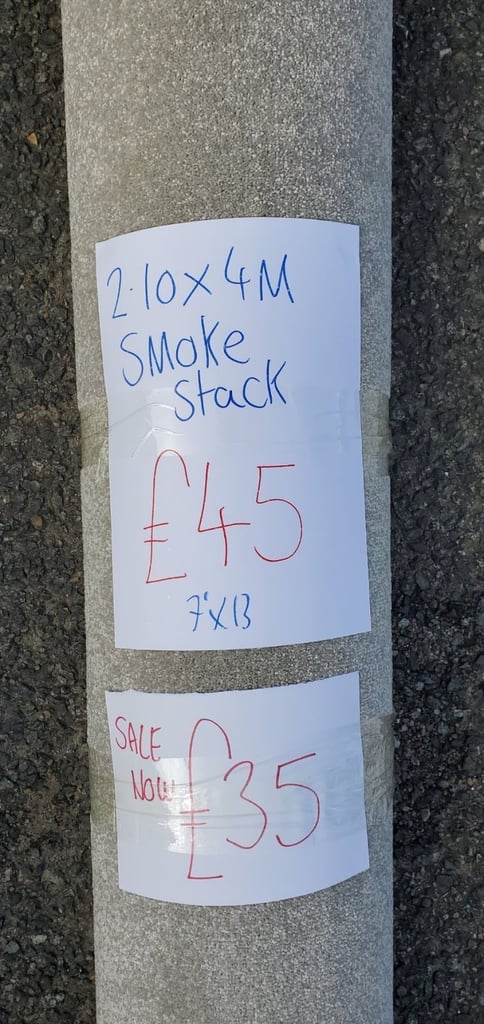 2.10 x 4M
SMOKE
Stack
£45
7'x13
SALE
NOW
£35